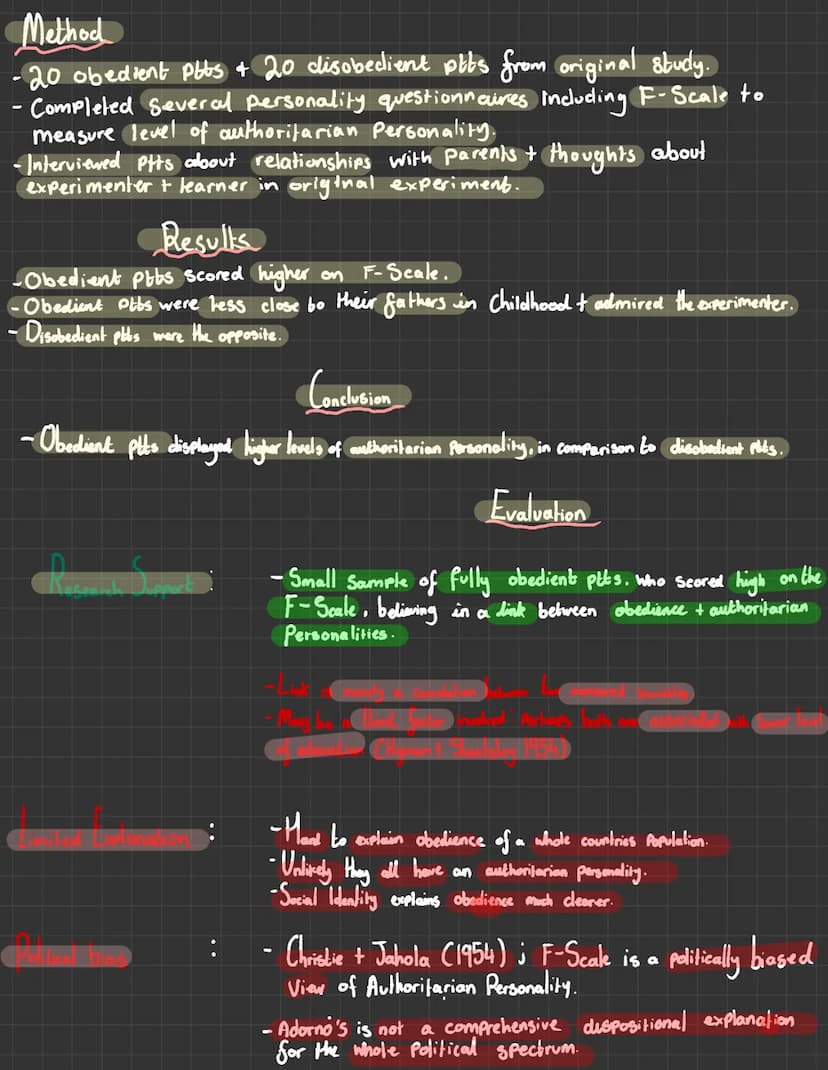 Method
- 20 obedient ptts + 20 disobedient ptts from original study.
- Completed several personality questionnaires including F-Scale to
measure level of authoritarian Personality.
- Interviewed Ptts about relationships with Parents + thoughts about
experimenter + learner in original experiment.
Results
- Obedient Ptts scored higher on F-Scale.
- Obedient Ptts were less close to their fathers in Childhood + admired the experimenter.
- Disobedient ptts were the opposite.
Conclusion
- Obedient ptts displayed higher levels of authoritarian Personality, in comparison to disobedient Ptts.
Evaluation
Research Support :
- Small Sample of fully obedient ptts. who scored high on the
F-Scale, believing in a link between obedience + authoritarian
Personalities.
- Link is merely a correlation between two measured
- May be a third factor involved. Perhaps both are associated with lower level
of education (Hyman + Sheatsley 1954)
Limited Explanation :
- Hard to explain obedience of a whole countries Population.
- Unlikely they all have an authoritarian personality.
- Social Identity explains obedience much clearer.
Political bias :
- Christie + Jahola (1954) ; F-Scale is a politically biased
View of Authoritarian Personality.
- Adorno's is not a comprehensive dispositional explanation
for the whole Political spectrum.